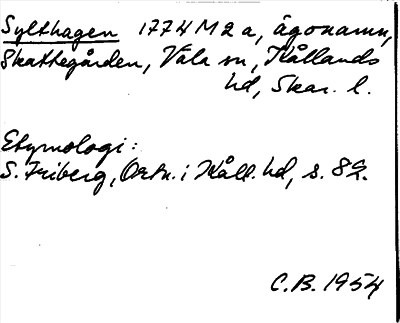 Sylthagen 1774 M 2 a, ägonamn,
Skattegården, Vala sn, Kållands
hd, Skar. l.
Etymologi:
S. Friberg, Ortn. i Kåll. hd, s. 82.
C.B. 1954